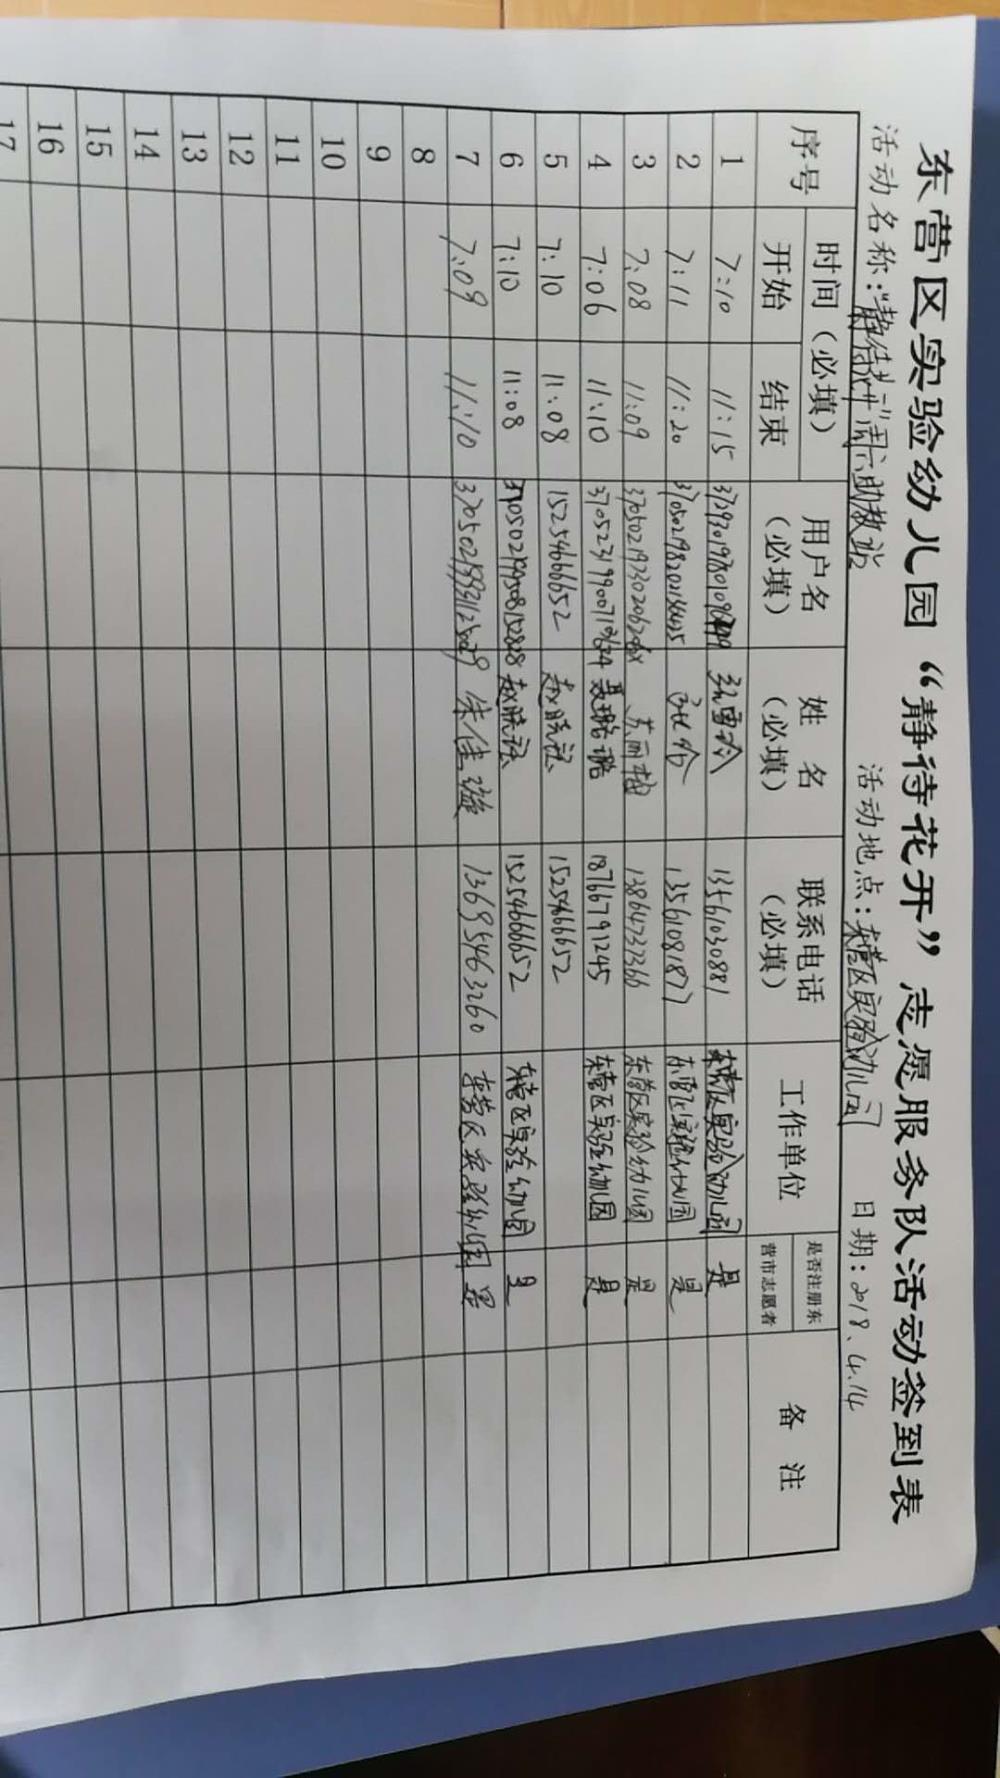 东营区实验幼儿园“静待花开”志愿服务队活动签到表
活动名称：“静待花开”周六助教 活动地点：东营区实验幼儿园 日期：2018.4.14
序号 时间（必填） 用户名（必填） 姓名（必填） 联系电话（必填） 工作单位 是否注册东营市志愿者 备注
开始 结束
1 7:10 11:15 13561030881 东营区实验幼儿园 是
2 7:11 11:20 13561081877 东营区实验幼儿园 是
3 7:08 11:09 苏丽梅 13864737366 东营区实验幼儿园 是
4 7:06 11:10 聂璐璐 18766791245 东营区实验幼儿园 是
5 7:10 11:08 15254666652 15254666652
6 7:10 11:08 370502199508152828 15254666652 东营区实验幼儿园 是
7 7:09 11:10 朱佳璇 13695463260 东营区实验幼儿园 是
8
9
10
11
12
13
14
15
16
17